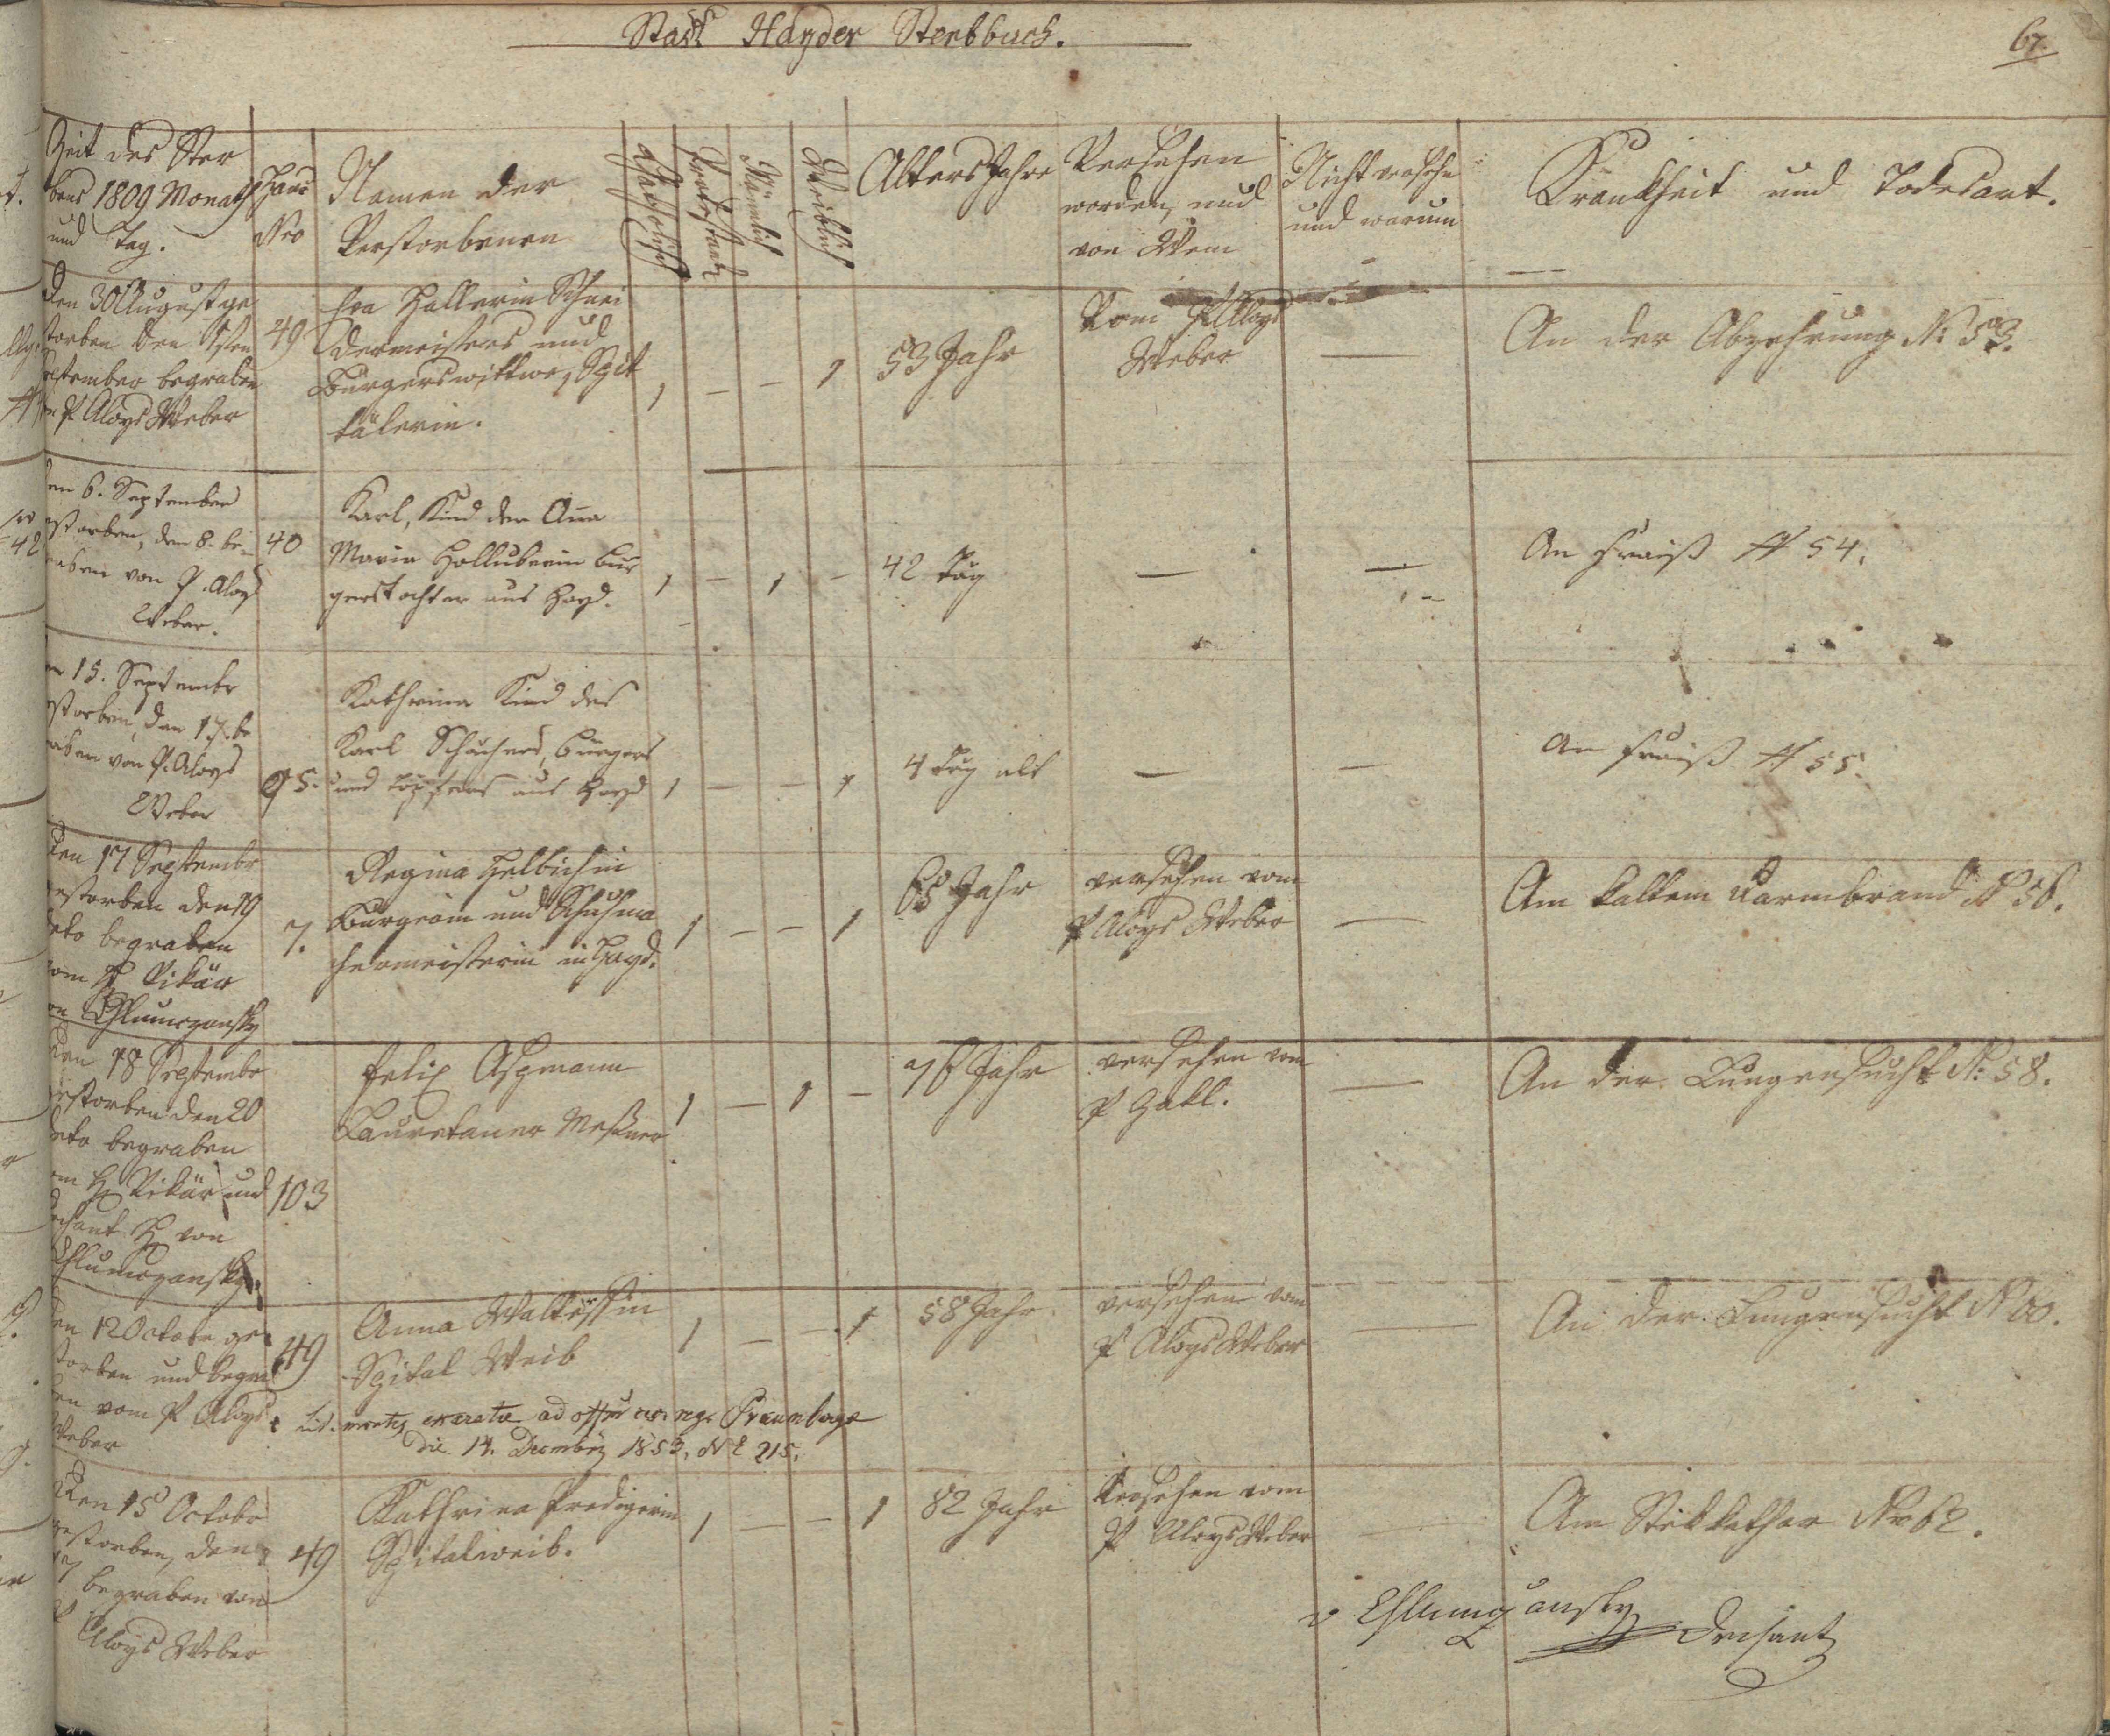 Stadt Hayder Sterbbuch.
67.
Zeit des Ster
bens 1809 Monath
und Tag.
Haus
Nro
Namen der
Verstorbenen
Katholisch
Protestant
Männlich
Weiblich
Alters Jahre
Versehen
worden, und
von Wem
Nicht versehn
und warum
Krankheit und Todesart.
Den 30 August ge
storben den 1sten
September begraben
P Aloys Weber
49
Eva Hallerin Schnei
dermeisters und
Bürgerswittwe, Spit
tälerin.
1 — — 1
53 Jahr
Vom P Aloys
Weber
—
An der Abzehrung N: 53.
den 6. September
gestorben, den 8. be
graben von P. Aloys
Weber.
40
Karl, Kind der Anna
Maria Holluberin Bür
gerstochter aus Hayd.
1 — 1 —
42 Täg
—
—
An Frais N 54.
15. Septembr
gestorben, den 17. be
graben von P. Aloys
Weber
95.
Kathrina Kind des
Karl Bürgers
und Töpfers aus Hayd
1 — — 1
4 Täg alt
—
—
An Frais N 55.
Den 17 Septembr
gestorben den 19
deto begraben
vom H Vikär
von Chlumczansky
7.
Regina Helbichin
Bürgerin und Schuhma
chermeisterin in Hayd.
1 — — 1
65 Jahr
versehen vom
P Aloys Weber
—
Am kalten Darmbrand N 56.
Den 18 Septembr
gestorben den 20
deto begraben
vom H Vikär und
Dechant H von
Chlumczansky.
103
Felix Aßmann
Lauretaner Meßner
1 — 1 —
76 Jahr
versehen vom
P Gabl.
—
An der Lungensucht N: 58.
Den 12 Octobr ge
storben und begra
ben vom P Aloys
Weber
49
Anna
Spital Weib
1 — — 1
58 Jahr
versehen vom
P Aloys Weber
—
An der Lungensucht N 60.
die 14. Decembris 1853, N 215.
Den 15 Octobr
gestorben, den
17 begraben von
P Aloys Weber
49
Kathrina Predigerin
Spitalweib.
1 — — 1
82 Jahr
Versehen vom
P Aloys Weber
—
Am Stekkathar Nr 62.
v Chlumczansky
Dechant